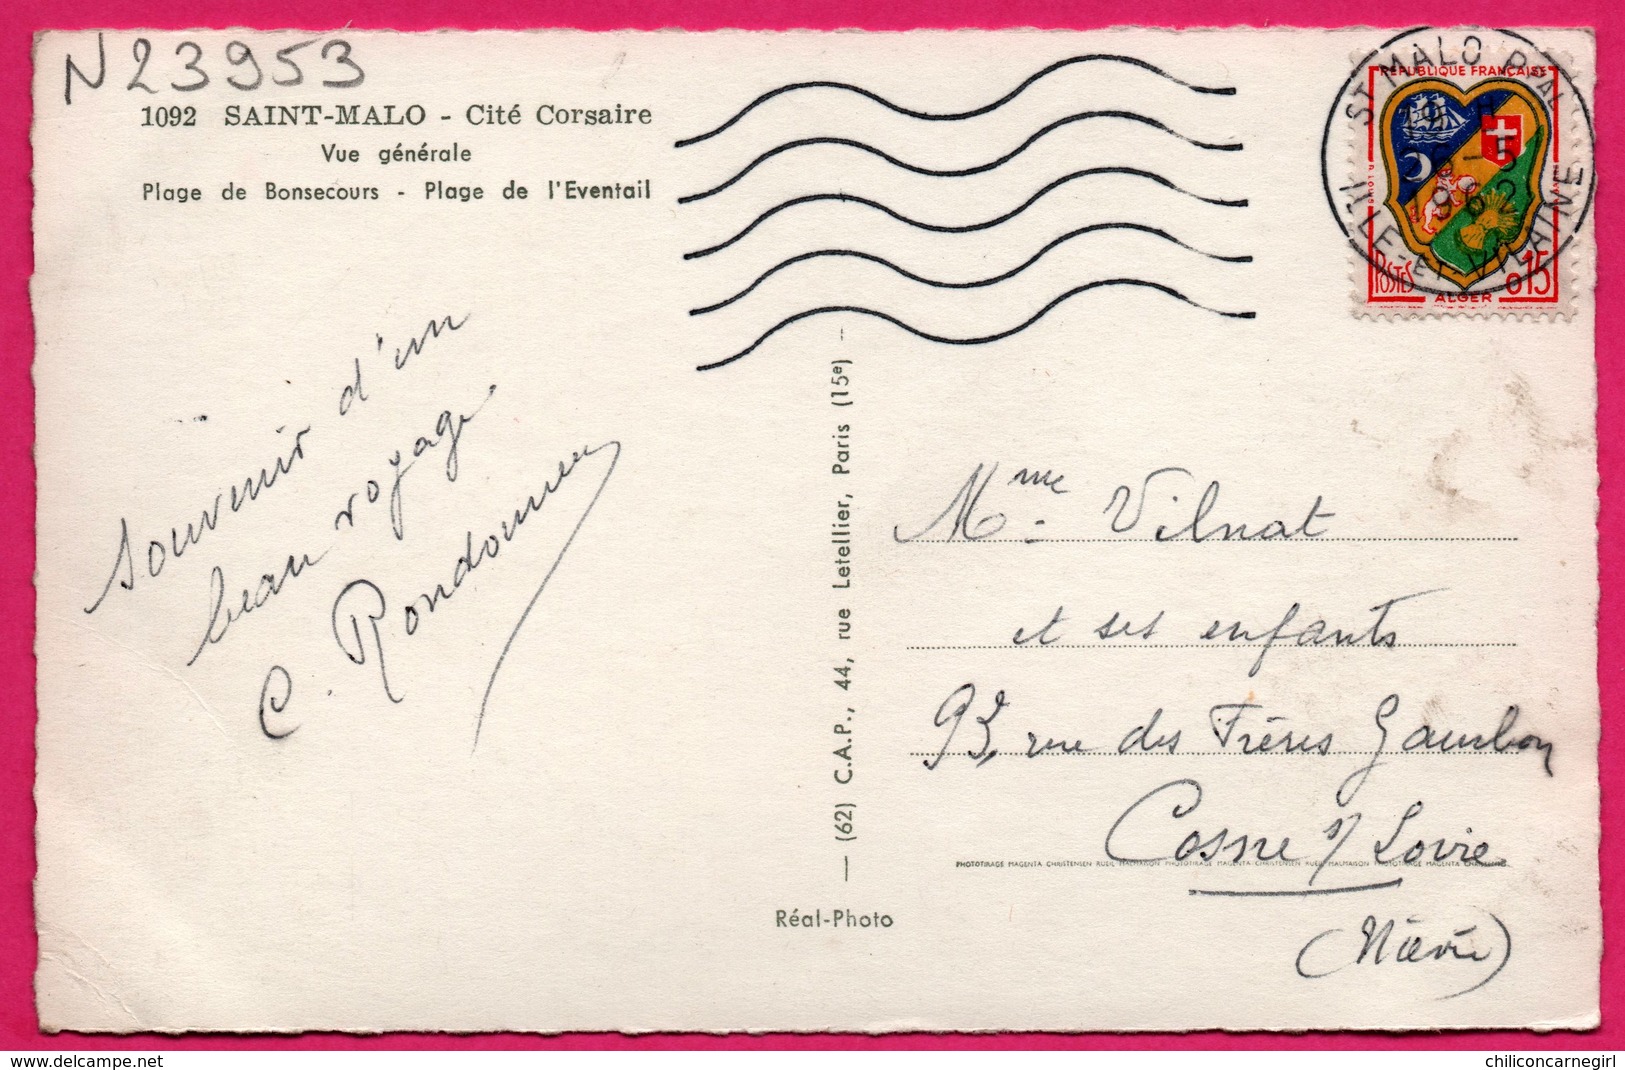 N23953
1092 SAINT-MALO - Cité Corsaire
Vue générale
Plage de Bonsecours - Plage de l'Eventail
Souvenir d'un
beau voyage
C.
ST MALO PPAL
19 H
-5
1962
ILLE-ET-VILAINE
REPUBLIQUE FRANÇAISE
POSTES
ALGER
0,15
— (62) C.A.P., 44, rue Letellier, Paris (15e) —
Réal-Photo
Mme Vilnat
et ses enfants
93, rue des Frères Gambon
Cosne s/ Loire
PHOTOTIRAGE MAGENTA CHRISTENSEN RUEIL MALMAISON PHOTOTIRAGE MAGENTA CHRISTENSEN RUEIL MALMAISON PHOTOTIRAGE MAGENTA
(Nièvre)
https://www.delcampe.net
chiliconcarnegirl